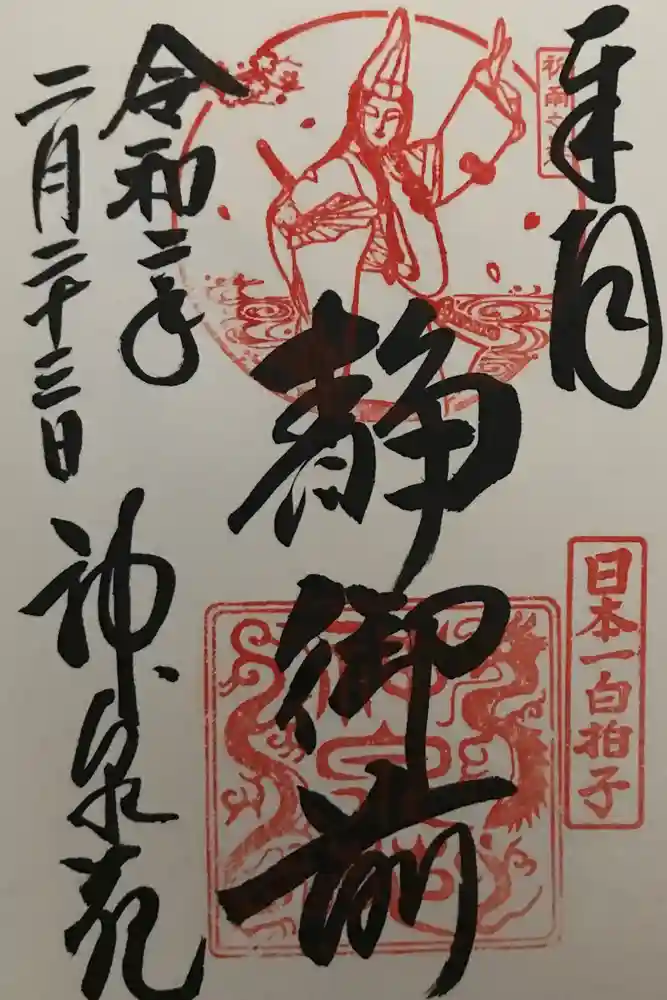 奉拝
祈雨之
日本一白拍子
静御前
令和二年
二月二十三日
神泉苑